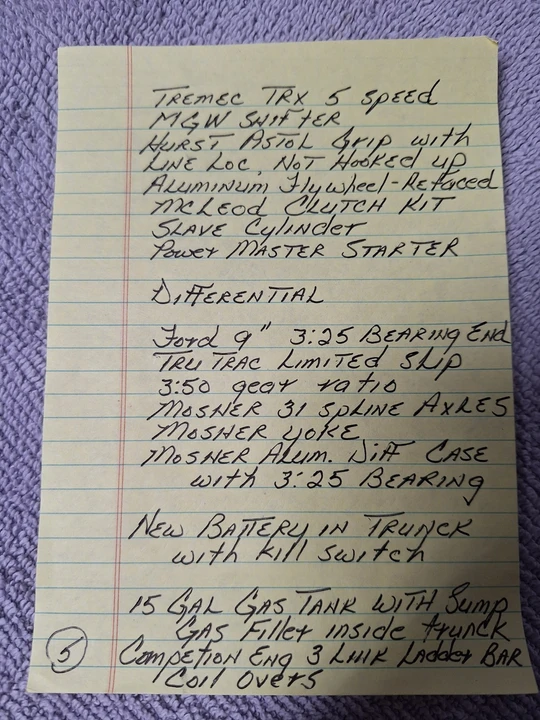 TREMEC TRX 5 SPEED
MGW SHIFTER
HURST ASTOL Grip with
LINE LOC, NOT HOOKED UP
ALUMINUM Flywheel-Refaced
MCLEOD CLUTCH KIT
SLAVE Cylinder
Power MASTER STARTER
DIFFERENTIAL
Ford 9" 3:25 BEARING End
TRU TRAC LIMITED SLIP
3:50 gear ratio
MOSHER 31 SPLINE AXLES
MOSHER YOKE
MOSHER ALUM. DIFF CASE
with 3:25 BEARING
NEW BATTERY IN TRUNCK
with Kill Switch
15 GAL GAS TANK WITH Sump
GAS Filler inside trunck
COMPETION ENG 3 LINK Ladder BAR
COIL OVERS
5